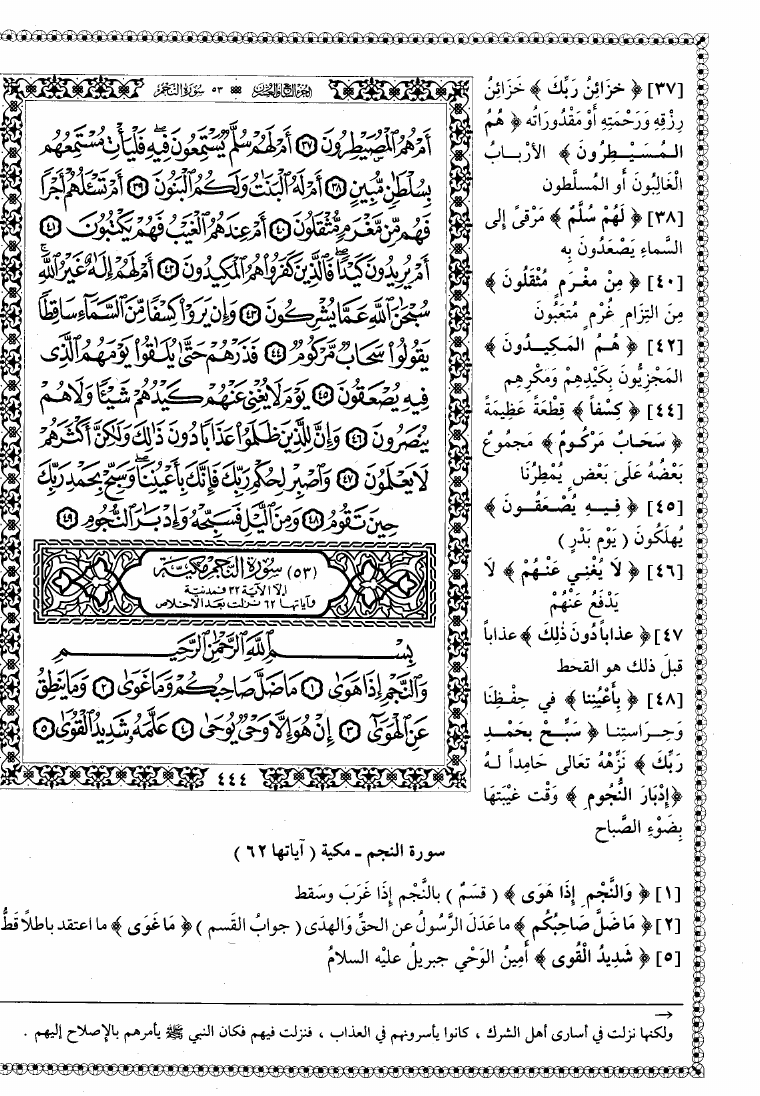 الجزء السابع والعشرون ٥٣ سورة النجم
أَمْ هُمُ ٱلْمُصَۣيْطِرُونَ ٣٧ أَمْ لَهُمْ سُلَّمٌ يَسْتَمِعُونَ فِيهِ فَلْيَأْتِ مُسْتَمِعُهُم
بِسُلْطَٰنٍ مُّبِينٍ ٣٨ أَمْ لَهُ ٱلْبَنَٰتُ وَلَكُمُ ٱلْبَنُونَ ٣٩ أَمْ تَسْـَٔلُهُمْ أَجْرًا
فَهُم مِّن مَّغْرَمٍ مُّثْقَلُونَ ٤٠ أَمْ عِندَهُمُ ٱلْغَيْبُ فَهُمْ يَكْتُبُونَ ٤١
أَمْ يُرِيدُونَ كَيْدًا فَٱلَّذِينَ كَفَرُوا۟ هُمُ ٱلْمَكِيدُونَ ٤٢ أَمْ لَهُمْ إِلَٰهٌ غَيْرُ ٱللَّهِ
سُبْحَٰنَ ٱللَّهِ عَمَّا يُشْرِكُونَ ٤٣ وَإِن يَرَوْا۟ كِسْفًا مِّنَ ٱلسَّمَآءِ سَاقِطًا
يَقُولُوا۟ سَحَابٌ مَّرْكُومٌ ٤٤ فَذَرْهُمْ حَتَّىٰ يُلَٰقُوا۟ يَوْمَهُمُ ٱلَّذِى
فِيهِ يُصْعَقُونَ ٤٥ يَوْمَ لَا يُغْنِى عَنْهُمْ كَيْدُهُمْ شَيْـًٔا وَلَا هُمْ
يُنصَرُونَ ٤٦ وَإِنَّ لِلَّذِينَ ظَلَمُوا۟ عَذَابًا دُونَ ذَٰلِكَ وَلَٰكِنَّ أَكْثَرَهُمْ
لَا يَعْلَمُونَ ٤٧ وَٱصْبِرْ لِحُكْمِ رَبِّكَ فَإِنَّكَ بِأَعْيُنِنَا وَسَبِّحْ بِحَمْدِ رَبِّكَ
حِينَ تَقُومُ ٤٨ وَمِنَ ٱلَّيْلِ فَسَبِّحْهُ وَإِدْبَٰرَ ٱلنُّجُومِ ٤٩
(٥٣) سورة النجم مكية
إلا الآية ٣٢ فمدنية
وآياتها ٦٢ نزلت بعد الإخلاص
بِسْمِ ٱللَّهِ ٱلرَّحْمَٰنِ ٱلرَّحِيمِ
وَٱلنَّجْمِ إِذَا هَوَىٰ ١ مَا ضَلَّ صَاحِبُكُمْ وَمَا غَوَىٰ ٢ وَمَا يَنطِقُ
عَنِ ٱلْهَوَىٰٓ ٣ إِنْ هُوَ إِلَّا وَحْىٌ يُوحَىٰ ٤ عَلَّمَهُۥ شَدِيدُ ٱلْقُوَىٰ ٥
٤٤٤
[٣٧] ﴿ خَزَائِنُ رَبِّكَ ﴾ خَزَائِنُ
رِزْقِهِ وَرَحْمَتِهِ أَوْ مَقْدُورَاتُه ﴿ هُمُ
الـمُسَـيْـطِرُونَ ﴾ الأَرْبـابُ
الْغَالِبُونَ أو المُسلَّطون
[٣٨] ﴿ لَهُمْ سُلَّمٌ ﴾ مَرْقىً إلى
السَّماءِ يَصْعَدُونَ بِه
[٤٠] ﴿ مِنْ مغْرَمٍ مُثْقَلُونَ ﴾
مِنَ التِزَامِ غُرْمٍ مُتعَبُونَ
[٤٢] ﴿ هُـمُ المَـكِيـدُونَ ﴾
المَجْزِيُّونَ بِكَيْدِهِمْ وَمَكْرِهِم
[٤٤] ﴿ كِسْفاً ﴾ قِطْعَةً عَظِيمَةً
﴿ سَحَـابٌ مَرْكُـومٌ ﴾ مَجمُوعٌ
بَعْضُهُ عَلَىٰ بَعْضٍ يُمْطِرُنَا
[٤٥] ﴿ فِـيـهِ يُصْـعَـقُــونَ ﴾
يُهلَكُونَ ( يَوْم بَدْرٍ )
[٤٦] ﴿ لَا يُغْنِـي عَنْـهُمْ ﴾ لَا
يَدْفَعُ عَنْهُمْ
[٤٧ ﴿ عذاباً دُونَ ذٰلِكَ ﴾ عذاباً
قبلَ ذلك هو القحط
[٤٨] ﴿ بِأَعْيُننا ﴾ في حِفْـظِنَا
وَحِـرَاسَتِنـا ﴿ سَبِّـحْ بحَمْـدِ
رَبِّكَ ﴾ نَزِّهْهُ تعَالى حَامِداً لـهُ
﴿إِدْبَارَ النُّجُومِ ﴾ وَقْت غيْبَتهَا
بِضَوْءِ الصَّباح
سورة النجم ـ مكية ( آياتها ٦٢ )
[١] ﴿ وَالنَّجْمِ إِذَا هَوَى ﴾ ( قسَمٌ ) بالنَّجْمِ إِذَا غَرَبَ وسَقط
[٢] ﴿ مَا ضَلَّ صَاحِبُكُم ﴾ ما عَدَلَ الرَّسُولُ عن الحقِّ وَالهدَى ( جوابُ القَسم ) ﴿ مَا غَوَى ﴾ ما اعتقد باطلًا قطُّ
[٥] ﴿ شَدِيدُ الْقُوى ﴾ أَمِينُ الوَحْي جبريلُ عليْه السلامُ
ولكنها نزلت في أسارى أهل الشرك ، كانوا يأسرونهم في العذاب ، فنزلت فيهم فكان النبي ﷺ يأمرهم بالإصلاح إليهم .